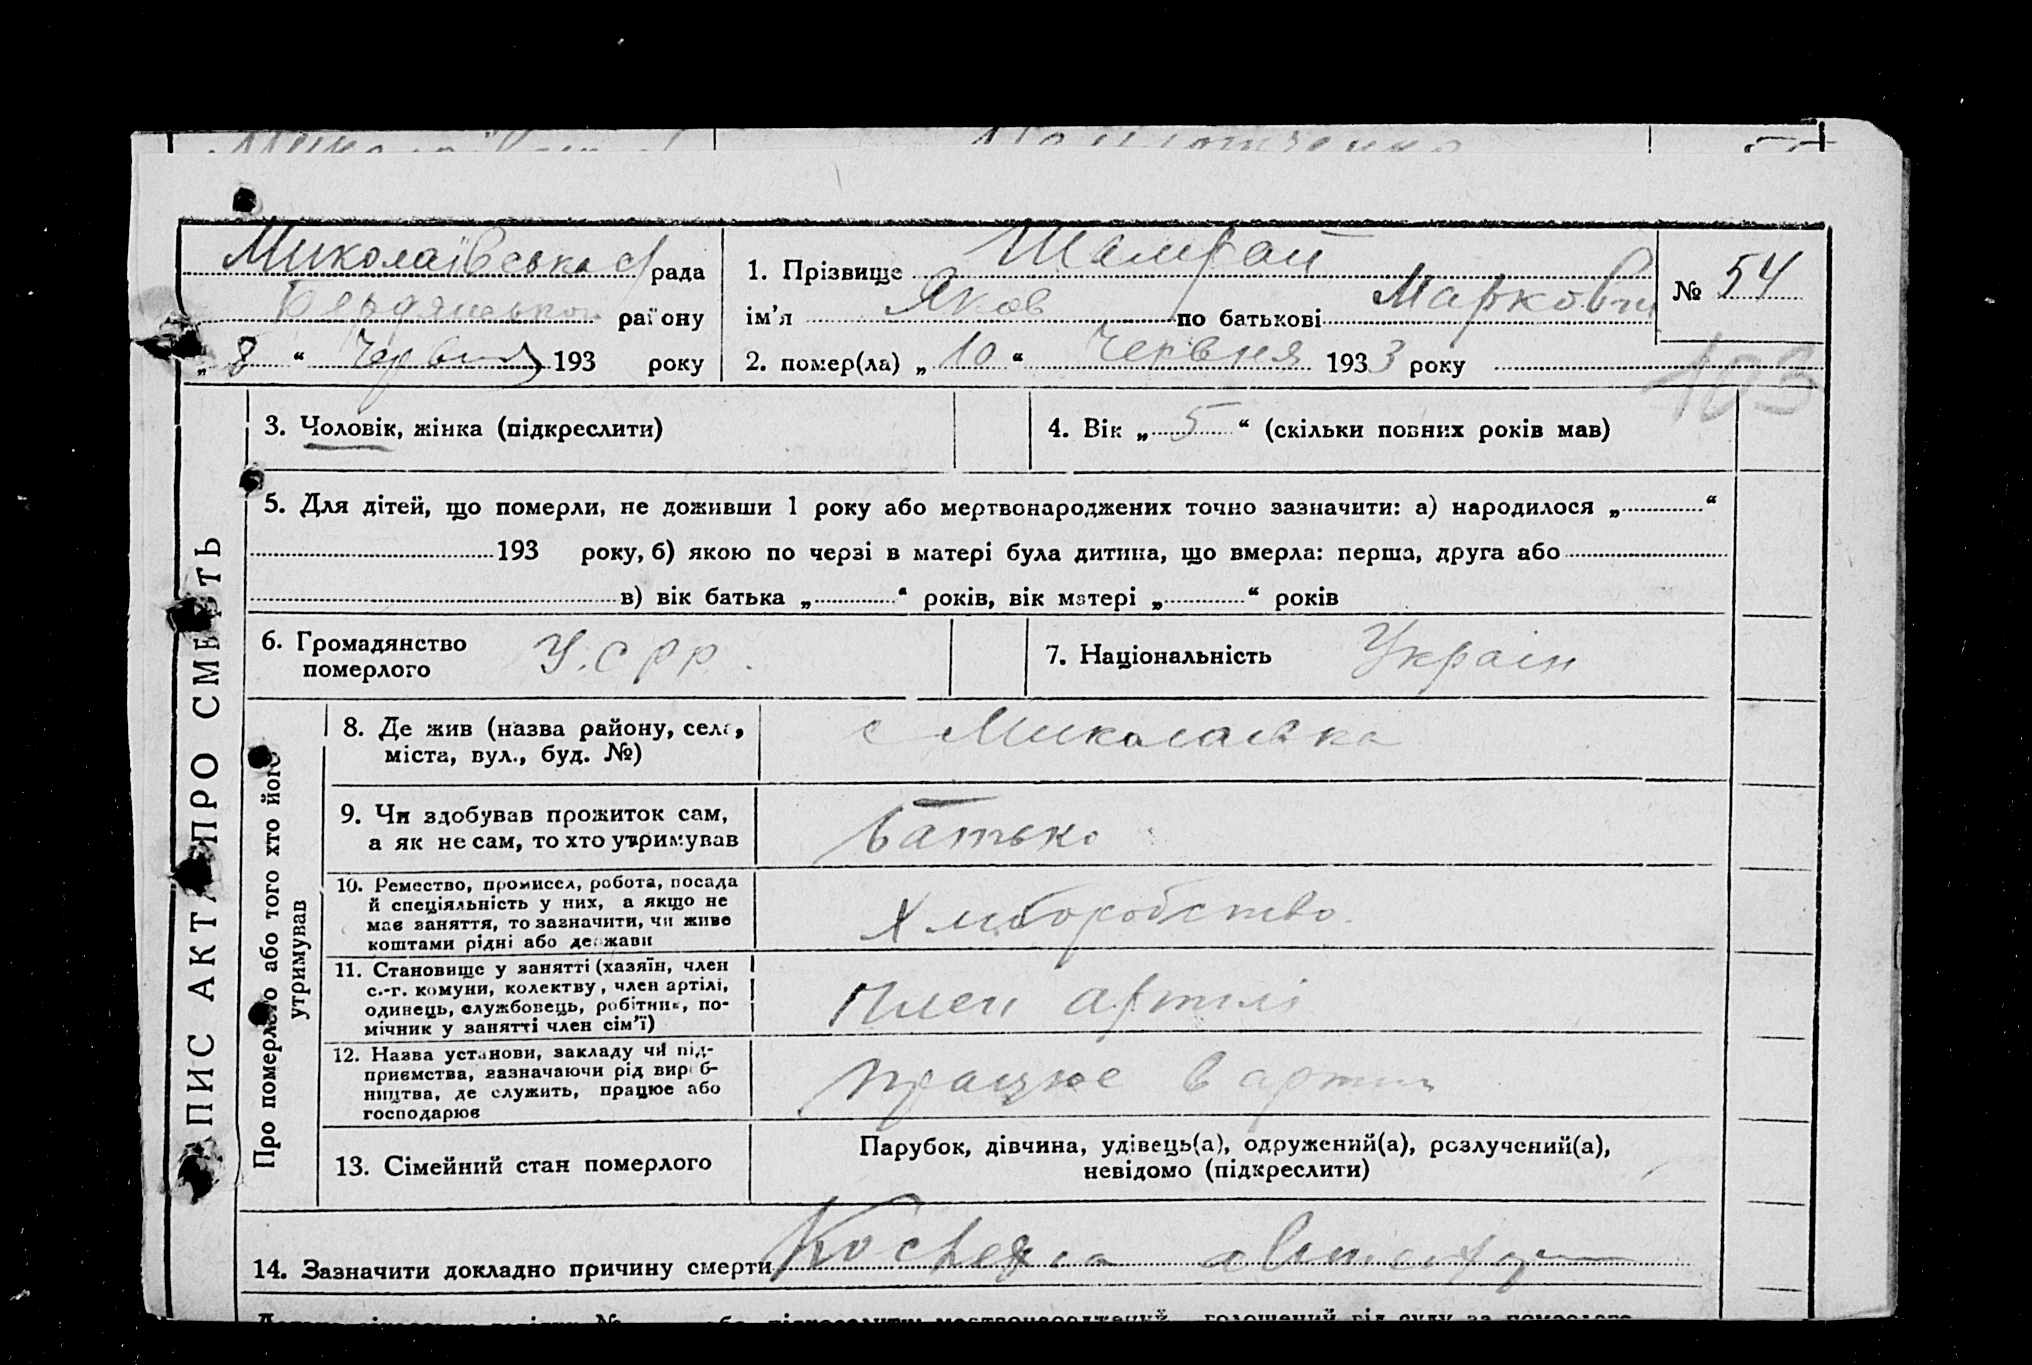 Миколаївська с/рада
Бердянського району
„ 8 “ Червня 193 року
1. Прізвище Шамрай
ім’я Яков по батькові Маркович
2. помер(ла) „ 10 “ Червня 1933 року
№ 54
103
ЗАПИС АКТА ПРО СМЕРТЬ
3. Чоловік, жінка (підкреслити)
4. Вік „ 5 “ (скільки повних років мав)
5. Для дітей, що померли, не доживши 1 року або мертвонароджених точно зазначити: а) народилося „ “
193 року, б) якою по черзі в матері була дитина, що вмерла: перша, друга або
в) вік батька „ “ років, вік матері „ “ років
6. Громадянство
померлого
У.С Р Р.
7. Національність Украін
Про померлого або того хто його
утримував
8. Де жив (назва району, села,
міста, вул., буд. №)
с Миколаівка
9. Чи здобував прожиток сам,
а як не сам, то хто утримував
батько
10. Ремество, промисел, робота, посада
й спеціяльність у них, а якщо не
має заняття, то зазначити, чи живе
коштами рідні або держави
Хліборобство.
11. Становище у занятті (хазяїн, член
с.-г. комуни, колективу, член артілі,
одинець, службовець, робітник, по-
мічник у занятті член сім’ї)
член артілі
12. Назва установи, закладу чи під-
приємства, зазначаючи рід вироб-
ництва, де служить, працює або
господарює
працює в артілі
13. Сімейний стан померлого
Парубок, дівчина, удівець(а), одружений(а), розлучений(а),
невідомо (підкреслити)
14. Зазначити докладно причину смерти